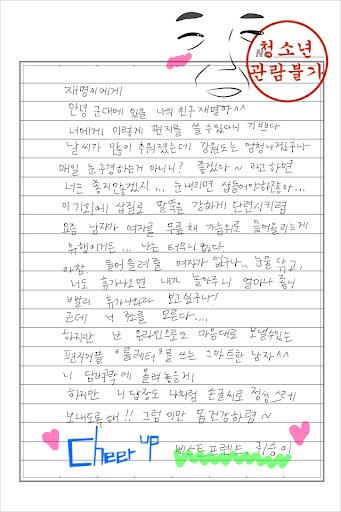 청소년
관람불가
재명이에게
안녕 군대에 있을 나의 친구 재명아^^
너에게 이렇게 편지를 쓸 수 있다니 기쁘다
날씨가 많이 추워졌는데 강원도는 엄청나겠구나
매일 눈구경하는거 아니니? 좋겠다~ 라고하면
너는 좋지않겠지... 눈내리면 삽들어야하잖아...
이기회에 삽질로 팔뚝을 강하게 단련시키렴
요즘 남자가 여자를 무릎채 가슴위로 들어올리는게
유행이거든... 나는 터무니없다.
아참, 들어올려줄 여자가 없구나... 눈물 닦고,
너도 휴가나오면 내가 놀아주니 얼마나 좋니
빨리 휴가나와라 보고싶구나!
근데 너 주소를 모른다....
하지만 난 온라인으로도 마음대로 보낼수있는
편지어플 "를레터"를 쓰는 스마트한 남자^^
니 담벼락에 올려놓을게
하지만 니 답장도 나처럼 손글씨로 정성스레
보내도록 해!! 그럼이만 몸건강하렴~
Cheer up
베스트프렌드 귀승이